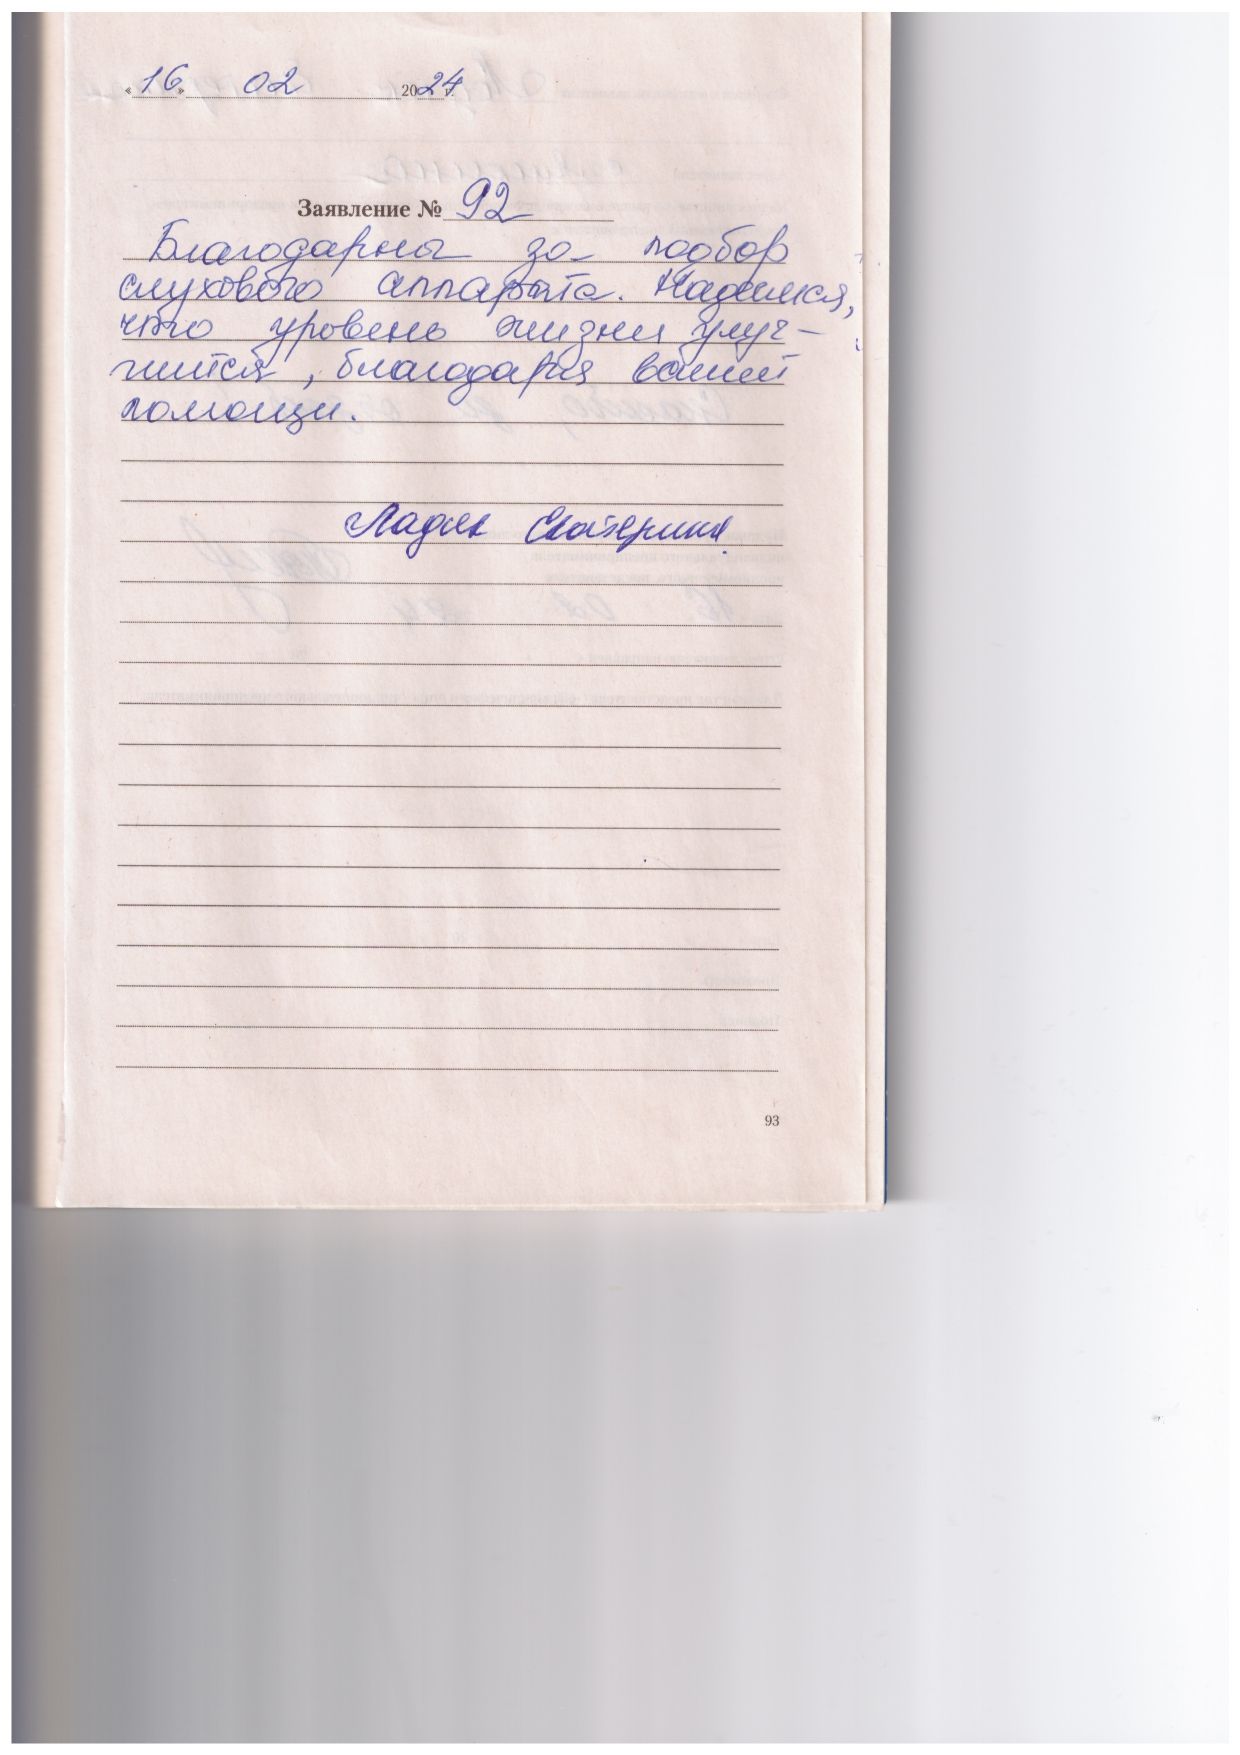 «16» 02 2024 г.
Заявление № 92
Благодарны за подбор
слухового аппарата. Надеемся,
что уровень жизни улуч-
шится, благодаря вашей
помощи.
Екатерина
93